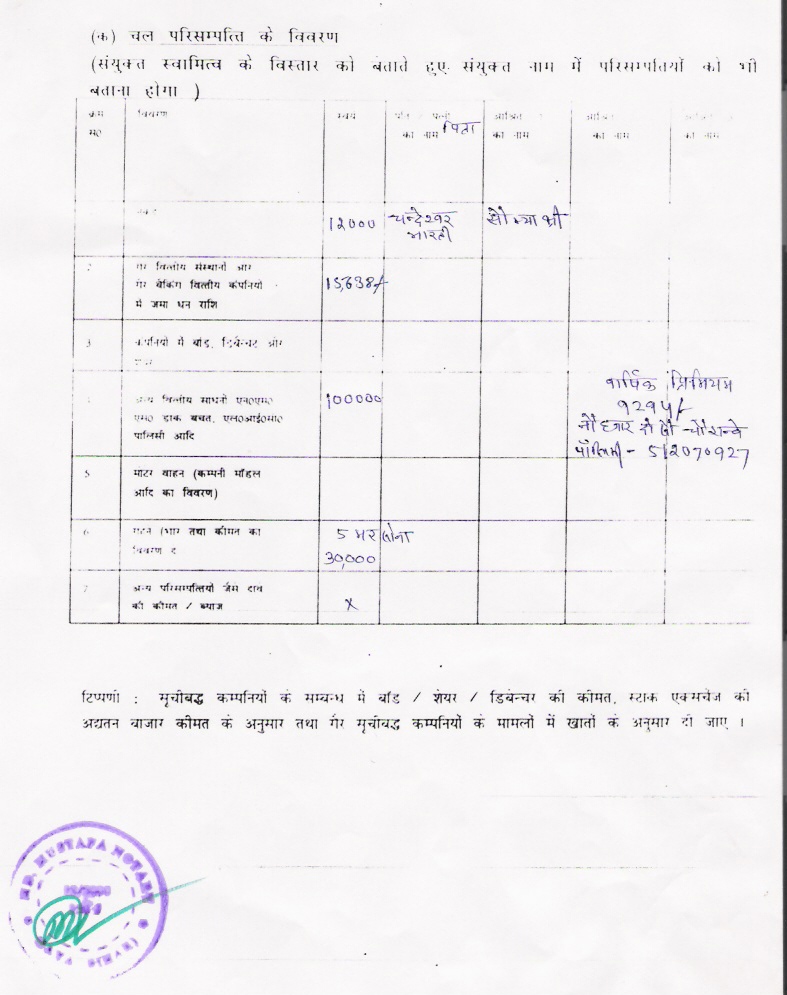 (क) चल परिसम्पत्ति के विवरण
(संयुक्त स्वामित्व के विस्तार को बताते हुए संयुक्त नाम में परिसम्पतियों को भी
बताना होगा )
क्रम विवरण स्वयं पति / पत्नी आश्रित आश्रित
स० का नाम पिता का नाम का नाम का नाम
12000 चन्देश्वर सौम्या श्री
भारती
2 गैर वित्तीय संस्थानों और
गैर बैंकिंग वित्तीय कंपनियों 15,638/-
में जमा धन राशि
3 कंपनियों में बांड, डिबेन्चर और
अन्य वित्तीय साधनों एन०एस० 100000 वार्षिक प्रिमियम
एस० डाक बचत, एल०आई०सी० 9294/-
पालिसी आदि नौ हजार दो सौ चौरान्वे
पॉलिसी - 512070927
5 मोटर वाहन (कम्पनी मॉडल
आदि का विवरण)
6 (भार तथा कीमत का 5 भर सोना
विवरण दें 30,000
7 अन्य परिसम्पत्तियों जैसे दावे
की कीमत / ब्याज X
टिप्पणी : सूचीबद्ध कम्पनियों के सम्बन्ध में बॉंड / शेयर / डिबेन्चर की कीमत, स्टाक एक्सचेंज की
अद्यतन बाजार कीमत के अनुसार तथा गैर सूचीबद्ध कम्पनियों के मामलों में खातों के अनुसार दी जाए ।
MD. MUSTAFA NOTARY